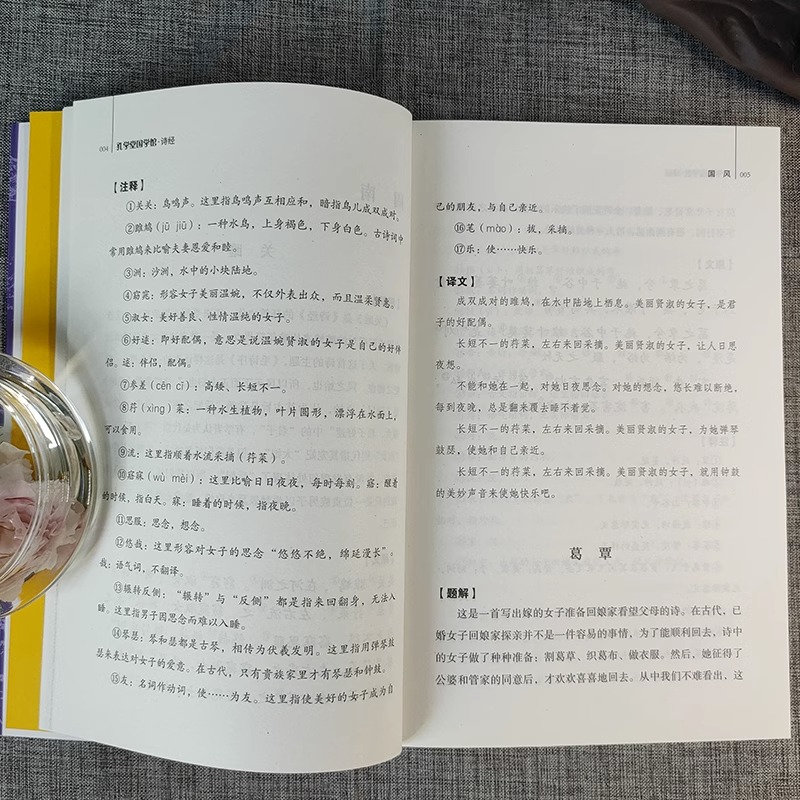 004 孔学堂国学馆·诗经
【注释】
①关关：鸟鸣声。这里指鸟鸣声互相应和，暗指鸟儿成双成对。
②雎鸠（jū jiū）：一种水鸟，上身褐色，下身白色。古诗词中
常用雎鸠来比喻夫妻恩爱和睦。
③洲：沙洲，水中的小块陆地。
④窈窕：形容女子美丽温婉，不仅外表出众，而且温柔贤惠。
⑤淑女：美好善良、性情温纯的女子。
⑥好逑：即好配偶，意思是说温婉贤淑的女子是自己的好伴
侣。逑：伴侣，配偶。
⑦参差（cēn cī）：高矮、长短不一。
⑧荇（xìng）菜：一种水生植物，叶片圆形，漂浮在水面上，
可以食用。
⑨流：这里指顺着水流采摘（荇菜）。
⑩寤寐（wù mèi）：这里比喻日日夜夜，每时每刻。寤：醒着
的时候，指白天。寐：睡着的时候，指夜晚。
⑪思服：思念，想念。
⑫悠哉：这里形容对女子的思念“悠悠不绝，绵延漫长”。
哉：语气词，不翻译。
⑬辗转反侧：“辗转”与“反侧”都是指来回翻身，无法入
睡。这里指男子因思念而难以入睡。
⑭琴瑟：琴和瑟都是古琴，相传为伏羲发明。这里指用弹琴鼓
瑟来表达对女子的爱意。在古代，只有贵族家里才有琴瑟和钟鼓。
⑮友：名词作动词，使……为友。这里指使美好的女子成为自
国 风 005
己的朋友，与自己亲近。
⑯芼（mào）：拔，采摘。
⑰乐：使……快乐。
【译文】
成双成对的雎鸠，在水中陆地上栖息。美丽贤淑的女子，是君
子的好配偶。
长短不一的荇菜，左右来回采摘。美丽贤淑的女子，让人日思
夜想。
不能和她在一起，对她日夜思念。对她的想念，悠长难以断绝，
每到夜晚，总是翻来覆去睡不着觉。
长短不一的荇菜，左右来回采摘。美丽贤淑的女子，为她弹琴
鼓瑟，使她和自己亲近。
长短不一的荇菜，左右来回采摘。美丽贤淑的女子，就用钟鼓
的美妙声音来使她快乐吧。
葛 覃
【题解】
这是一首写出嫁的女子准备回娘家看望父母的诗。在古代，已
婚女子回娘家探亲并不是一件容易的事情，为了能顺利回去，诗中
的女子做了种种准备：割葛草、织葛布、做衣服。然后，她征得了
公婆和管家的同意后，才欢欢喜喜地回去。从中我们不难看出，这